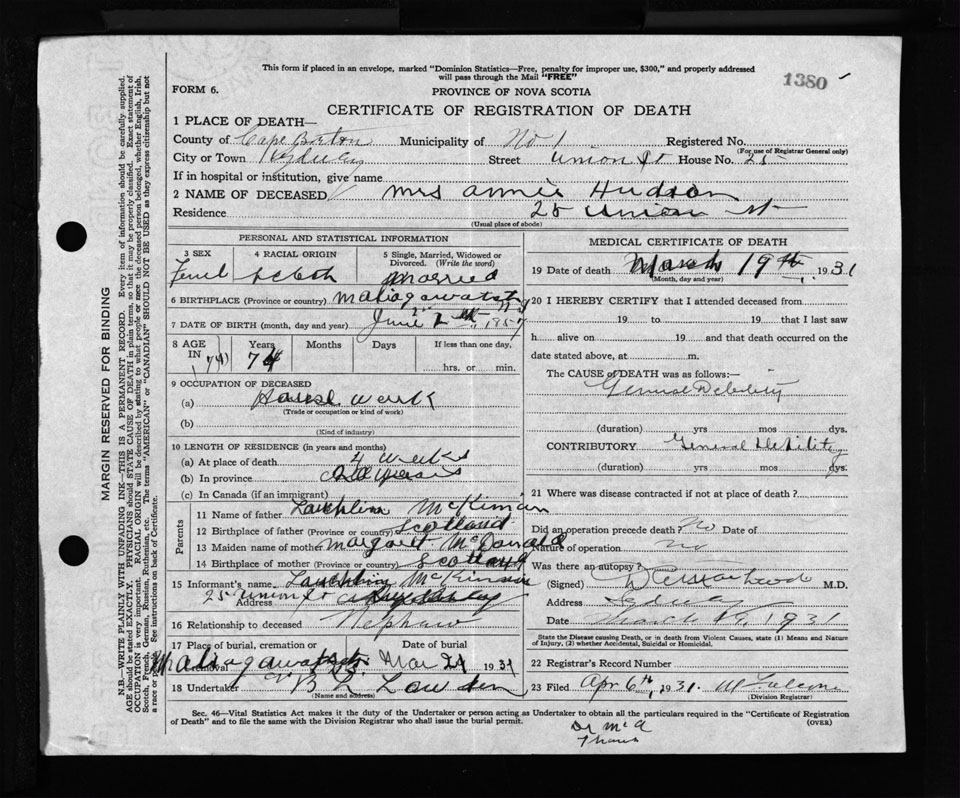 This form if placed in an envelope, marked "Dominion Statistics—Free, penalty for improper use, $300," and properly addressed
will pass through the Mail "FREE"
1380
FORM 6.
PROVINCE OF NOVA SCOTIA
CERTIFICATE OF REGISTRATION OF DEATH
1 PLACE OF DEATH—
County of Cape Breton Municipality of No 1 Registered No.
(For use of Registrar General only)
City or Town Sydney Street Union St House No. 25
If in hospital or institution, give name
2 NAME OF DECEASED Mrs Annie Hudson
Residence 25 Union St
(Usual place of abode)
PERSONAL AND STATISTICAL INFORMATION
3 SEX
4 RACIAL ORIGIN
5 Single, Married, Widowed or Divorced. (Write the word)
Married
6 BIRTHPLACE (Province or country)
7 DATE OF BIRTH (month, day and year) June 1857
8 AGE IN (74) Years 74 Months Days If less than one day, hrs. or min.
9 OCCUPATION OF DECEASED
(a) House Work
(Trade or occupation or kind of work)
(b)
(Kind of industry)
10 LENGTH OF RESIDENCE (in years and months)
(a) At place of death 4 weeks
(b) In province years
(c) In Canada (if an immigrant)
Parents
11 Name of father Lauchlin McKinnon
12 Birthplace of father (Province or country) Scotland
13 Maiden name of mother Margaret McDonald
14 Birthplace of mother (Province or country) Scotland
15 Informant's name Lauchlin McKinnon
Address 25 Union St
16 Relationship to deceased Nephew
17 Place of burial, cremation or removal Date of burial
Mar 21 1931
18 Undertaker Lowden
(Name and address)
MEDICAL CERTIFICATE OF DEATH
19 Date of death March 19th, 1931
(Month, day and year)
20 I HEREBY CERTIFY that I attended deceased from
19 to 19 that I last saw
h alive on 19 and that death occurred on the
date stated above, at m.
The CAUSE OF DEATH was as follows:—
General Debility
(duration) yrs mos dys.
CONTRIBUTORY General Debility
(duration) yrs mos dys.
21 Where was disease contracted if not at place of death?
Did an operation precede death? No Date of
Nature of operation no
Was there an autopsy?
(Signed) M.D.
Address Sydney
Date March 1931
State the Disease causing Death, or in death from Violent Causes, state (1) Means and Nature
of Injury, (2) whether Accidental, Suicidal or Homicidal.
22 Registrar's Record Number
23 Filed Apr 6th, 1931
(Division Registrar)
Sec. 46—Vital Statistics Act makes it the duty of the Undertaker or person acting as Undertaker to obtain all the particulars required in the "Certificate of Registration
of Death" and to file the same with the Division Registrar who shall issue the burial permit.
(OVER)
MARGIN RESERVED FOR BINDING
N.B.—WRITE PLAINLY WITH UNFADING INK—THIS IS A PERMANENT RECORD. Every item of information should be carefully supplied.
AGE should be stated EXACTLY. PHYSICIANS should STATE CAUSE OF DEATH in plain terms, so that it may be properly classified. Exact statement of
OCCUPATION is very important. RACIAL ORIGIN will be described by stating to what people or race the deceased person belonged, whether English, Irish,
Scotch, French, German, Russian, Ruthenian, etc. The terms "AMERICAN" or "CANADIAN" SHOULD NOT BE USED as they express citizenship but not
a race or people. See instructions on back of Certificate.